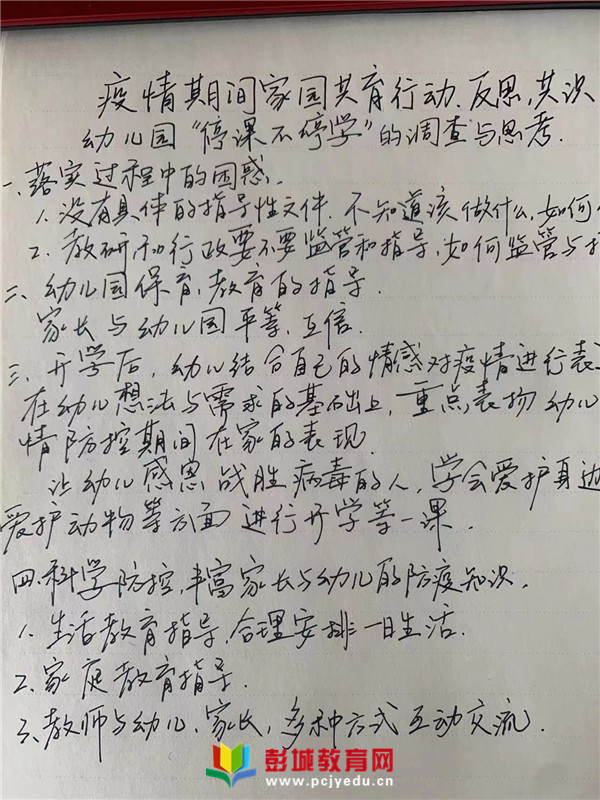 疫情期间家园共育行动、反思、共识
幼儿园“停课不停学”的调查与思考.
一、落实过程中的困惑.
1、没有具体的指导性文件、不知道该做什么、如何
2、教研和行政要不要监管和指导、如何监管与
二、幼儿园保育、教育的指导.
家长与幼儿园平等、互信.
三、开学后, 幼儿结合自己的情感对疫情进行表
在幼儿想法与需求的基础上, 重点表扬幼儿
情防控期间在家的表现.
让幼儿感恩战胜病毒的人, 学会爱护身边
爱护动物等方面进行开学第一课.
四、科学防控, 丰富家长与幼儿的防疫知识.
1、生活教育指导、合理安排一日生活.
2、家庭教育指导.
3、教师与幼儿、家长, 多种方式互动交流.
彭城教育网
www.pcjyedu.cn